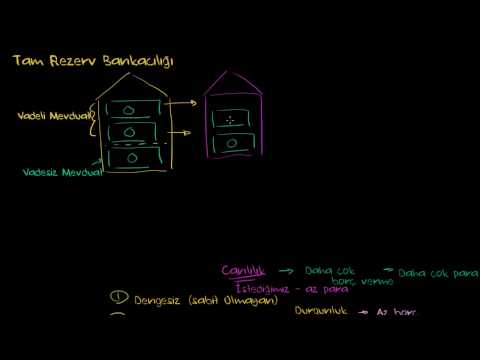 Tam Rezerv Bankacılığı
Vadeli Mevduat
Vadesiz Mevduat
Canlılık → Daha çok borç verme → Daha çok para
İstediğimiz - az para
1 Dengesiz (sabit olmayan)
Durgunluk → Az borç